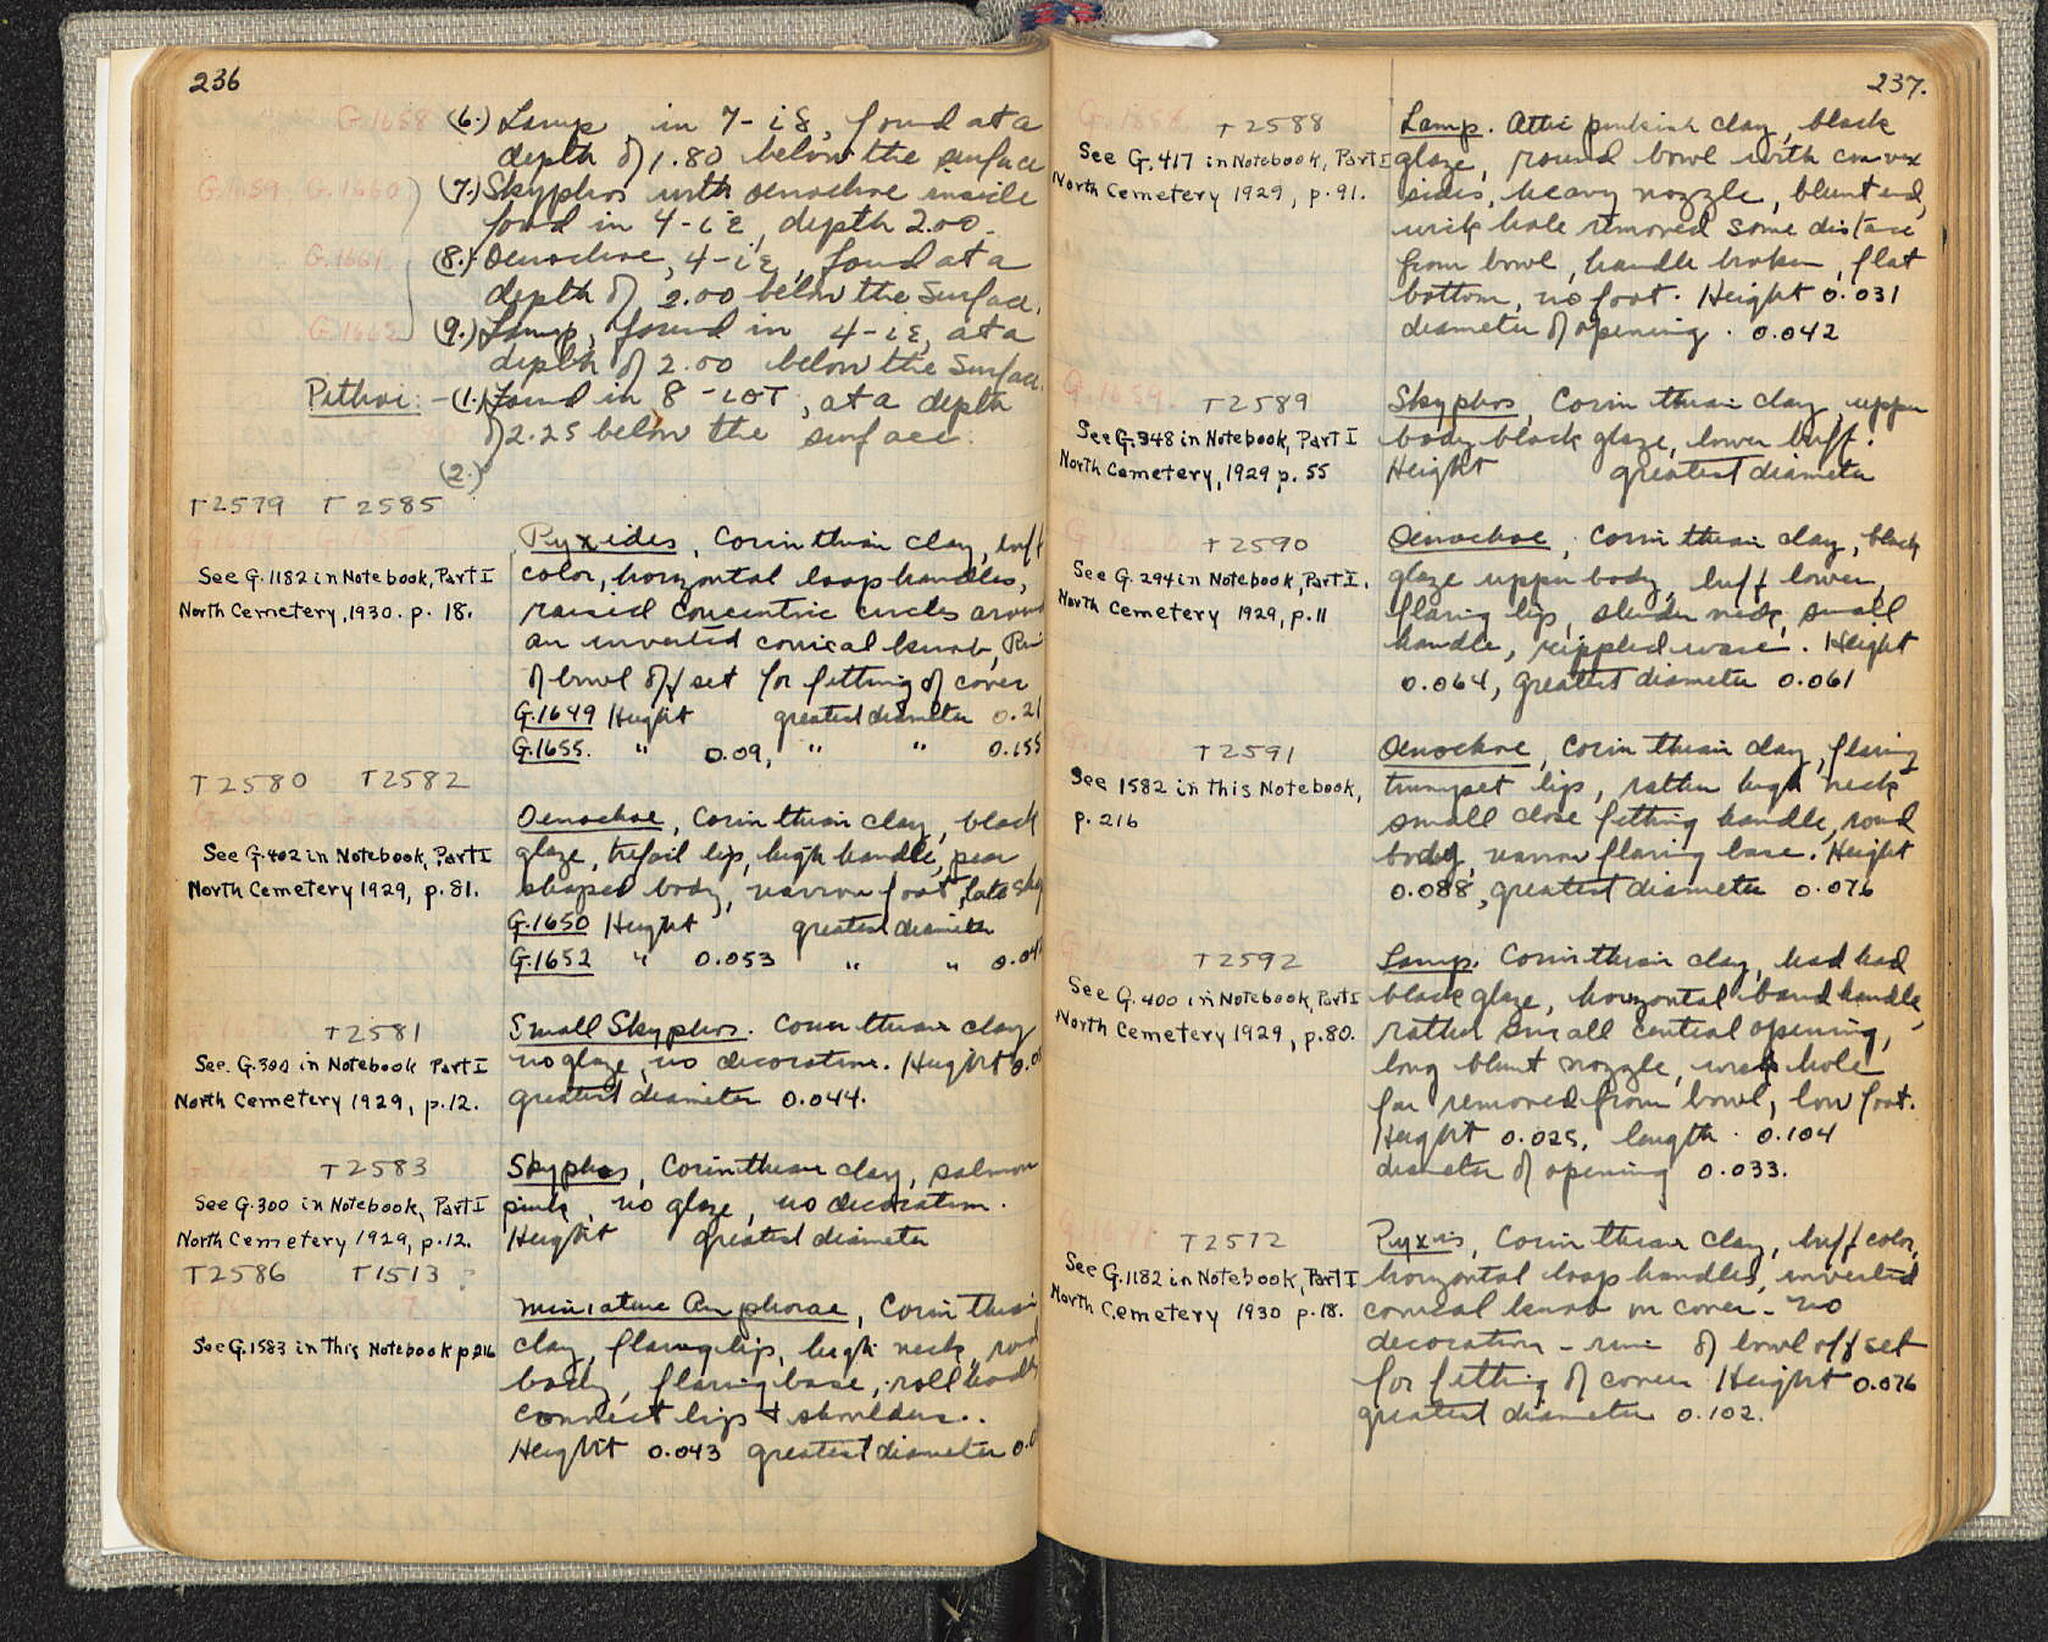 236
G.1658 (6.) Lamp, in 7-ις, found at a
depth of 1.80 below the surface
G.1659 G.1660 (7.) Skyphos with oenochoe inside
found in 4-ιε, depth 2.00.
G.1661 (8.) Oenochoe, 4-ιε, found at a
depth of 2.00 below the surface.
G.1662 (9.) Lamp, found in 4-ιε, at a
depth of 2.00 below the surface.
Pithoi: - (1.) Found in 8-ιστ, at a depth
of 2.25 below the surface.
(2.)
T2579 T2585
G.1649 G.1655
See G.1182 in Notebook, Part I
North Cemetery, 1930. p. 18.
Pyxides, Corinthian clay, buff
color, horizontal loop handles,
raised concentric circles around
an inverted conical knob, Rim
of bowl offset for fitting of cover
G.1649 Height greatest diameter 0.21
G.1655. " 0.09, " " 0.155
T2580 T2582
G.1650 G.1652
See G.402 in Notebook, Part I
North Cemetery 1929, p. 81.
Oenochoe, Corinthian clay, black
glaze, trefoil lip, high handle, pear
shaped body, narrow foot,
G.1650 Height greatest diameter
G.1652 " 0.053 " " 0.04
T2581
See. G.300 in Notebook Part I
North Cemetery 1929, p.12.
Small Skyphos. Corinthian clay
no glaze, no decoration. Height 0.0
greatest diameter 0.044.
T2583
See G.300 in Notebook, Part I
North Cemetery 1929, p.12.
Skyphos, Corinthian clay, salmon
pink, no glaze, no decoration.
Height greatest diameter
T2586 T1513 ?
See G.1583 in this Notebook p.216
Miniature Amphorae, Corinthian
clay, flaring lip, high neck, round
body, flaring base, roll handles
connect lip + shoulders..
Height 0.043 greatest diameter 0.0
237.
T2588
See G.417 in Notebook, Part I
North Cemetery 1929, p.91.
Lamp. Attic pinkish clay, black
glaze, round bowl with convex
sides, heavy nozzle, blunt end,
wick hole removed some distance
from bowl, handle broken, flat
bottom, no foot. Height 0.031
diameter of opening. 0.042
G.1659.
T2589
See G.348 in Notebook, Part I
North Cemetery, 1929 p. 55
Skyphos, Corinthian clay, upper
body black glaze, lower buff.
Height greatest diameter
T2590
See G.294 in Notebook, Part I.
North Cemetery 1929, p.11
Oenochoe, Corinthian clay, black
glaze upper body, buff lower,
flaring lip, slender neck, small
handle, rippled ware. Height
0.064, greatest diameter 0.061
T2591
See 1582 in this Notebook,
p. 216
Oenochoe, Corinthian clay, flaring
trumpet lip, rather high neck
small close fitting handle, round
body, narrow flaring base. Height
0.088, greatest diameter 0.076
T2592
See G.400 in Notebook, Part I
North Cemetery 1929, p.80.
Lamp. Corinthian clay, had had
black glaze, horizontal band handle,
rather small central opening,
long blunt nozzle, wick hole
far removed from bowl, low foot.
Height 0.025, length. 0.104
diameter of opening 0.033.
T2572
See G.1182 in Notebook, Part I
North Cemetery 1930 p.18.
Pyxis, Corinthian clay, buff color,
horizontal loop handles, inverted
conical knob on cover - no
decoration - rim of bowl offset
for fitting of cover Height 0.076
greatest diameter 0.102.